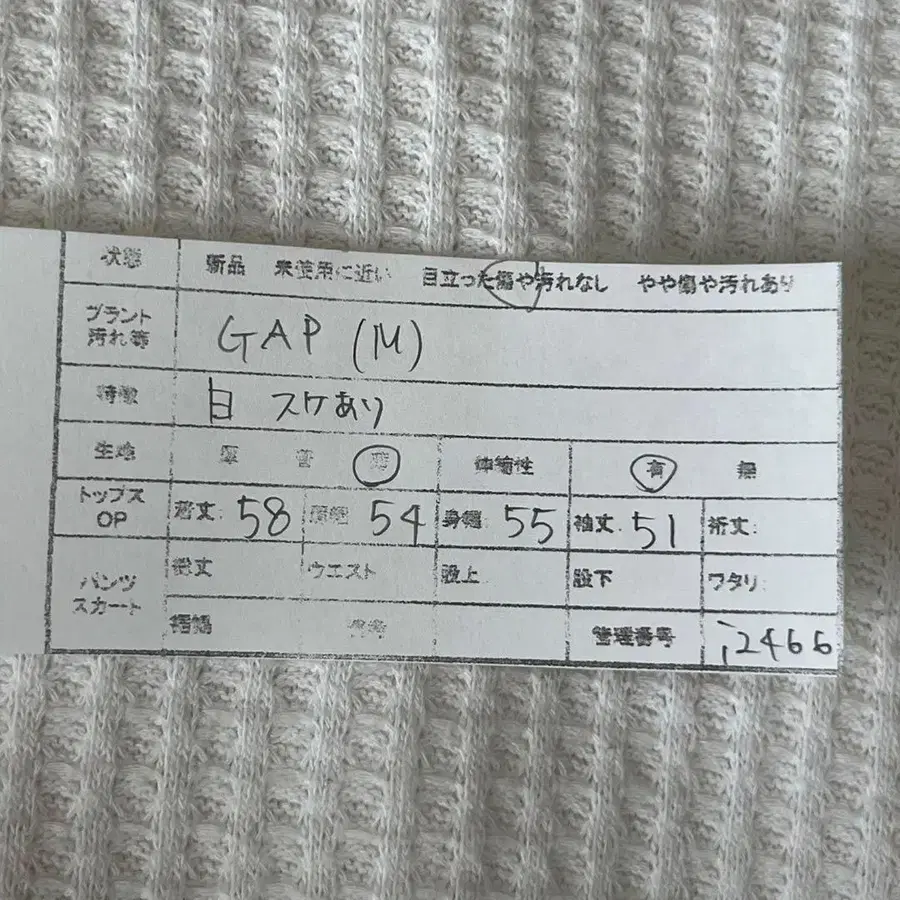 状態 新品 未使用に近い 目立った傷や汚れなし やや傷や汚れあり
ブランド
汚れ等 GAP (M)
特徴 白 スケあり
生地 厚 普 薄 伸縮性 有 無
トップス
OP 着丈: 58 肩幅: 54 身幅: 55 袖丈: 51 裄丈:
パンツ
スカート 総丈 ウエスト 股上 股下 ワタリ
裾幅 備考 管理番号 i2466